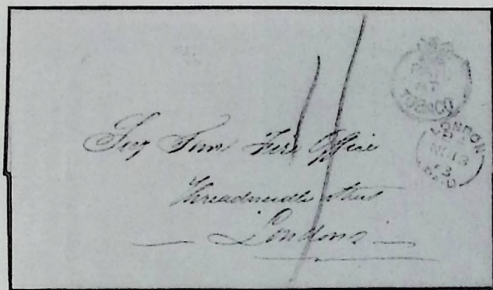 PAID
AT
TOBAGO
LONDON
PAID
Secy Sun Fire Office
Threadneedle street
London